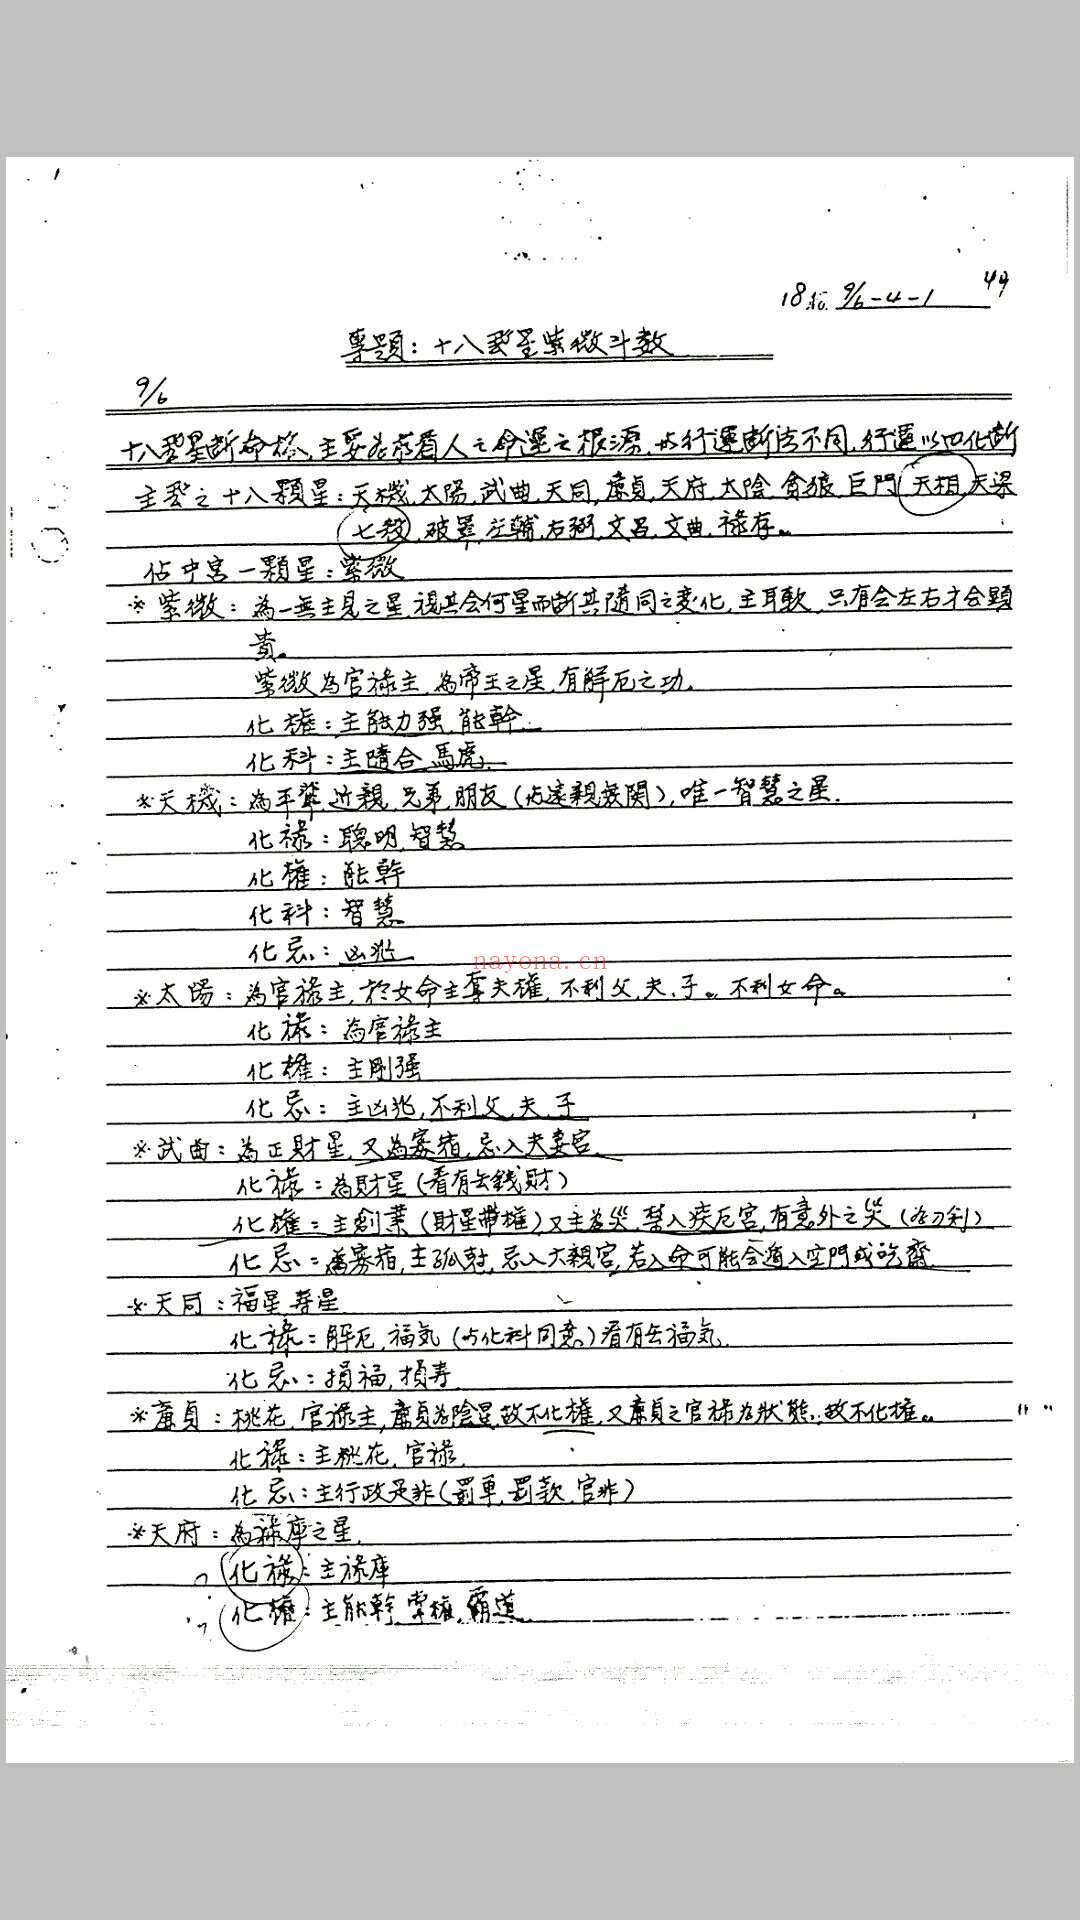 49
18 9/6-4-1
專題：十八飛星紫微斗数
9/6
十八飛星断命格，主要為察看人之命運之根源，与行運断法不同，行運以四化断
主飛之十八顆星：天機，太陽，武曲，天同，廉貞，天府，太陰，貪狼，巨門，天相，天梁
七殺，破軍，左輔，右弼，文昌，文曲，禄存。
佔中宮一顆星：紫微
※紫微：為一無主見之星，視其会何星而断其隨同之变化，主耳軟，只有会左右才会顯
貴。
紫微為官禄主，為帝王之星，有解厄之功。
化權：主能力强，能幹
化科：主隨合，馬虎
※天機：為平輩，近親，兄弟，朋友（与遠親無関），唯一智慧之星.
化禄：聰明，智慧
化權：能幹
化科：智慧
化忌：凶兆
nayona.cn
※太陽：為官禄主，於女命主奪夫權，不利父，夫，子。不利女命。
化禄：為官禄主
化權：主剛强
化忌：主凶兆，不利父，夫，子
※武曲：為正財星，又為寡宿，忌入夫妻宮
化禄：為財星（看有去錢財）
化權：主創業（財星帶權）又主為災，禁入疾厄宮，有意外之災（為刀利）
化忌：為寡宿，主孤尅，忌入六親宮，若入命可能会遁入空門或吃齋
※天同：福星，寿星
化禄：解厄，福気（与化科同意）看有去福気.
化忌：損福，損寿
※廉貞：桃花，官禄主，廉貞為陰星，故不化權，又廉貞之官禄為狀態，故不化權。
化禄：主桃花，官禄
化忌：主行政是非（罰單，罰款，官非）
※天府：為禄庫之星.
化禄：主禄庫
化權：主能幹，掌權，霸道